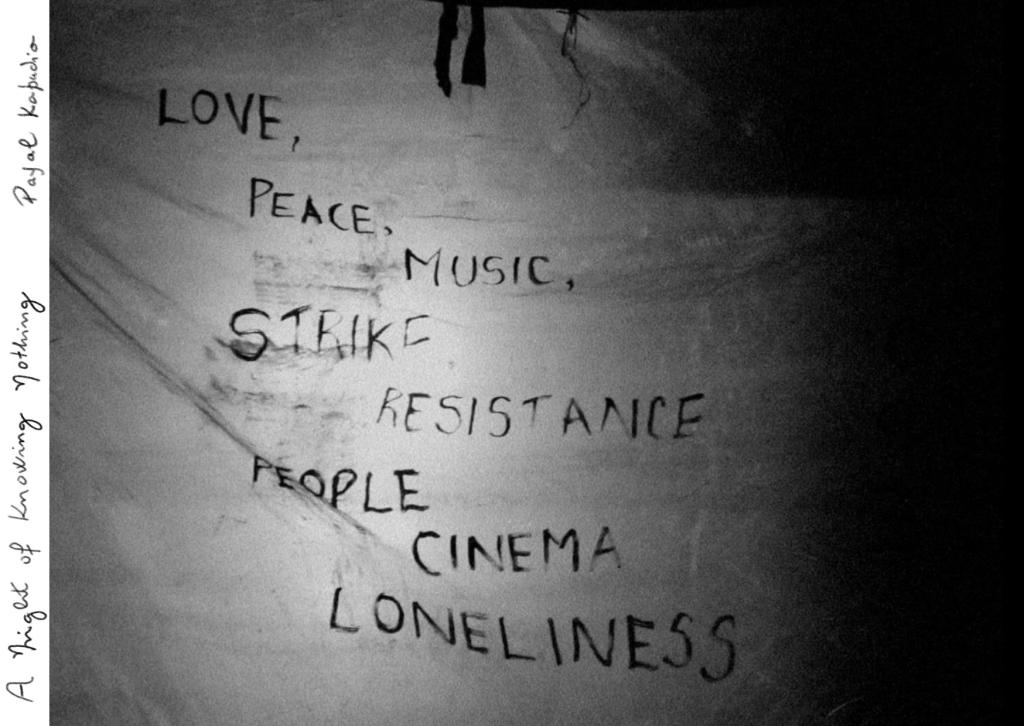 A Night of Knowing Nothing Payal Kapadia
LOVE,
PEACE,
MUSIC,
STRIKE
RESISTANCE
PEOPLE
CINEMA
LONELINESS